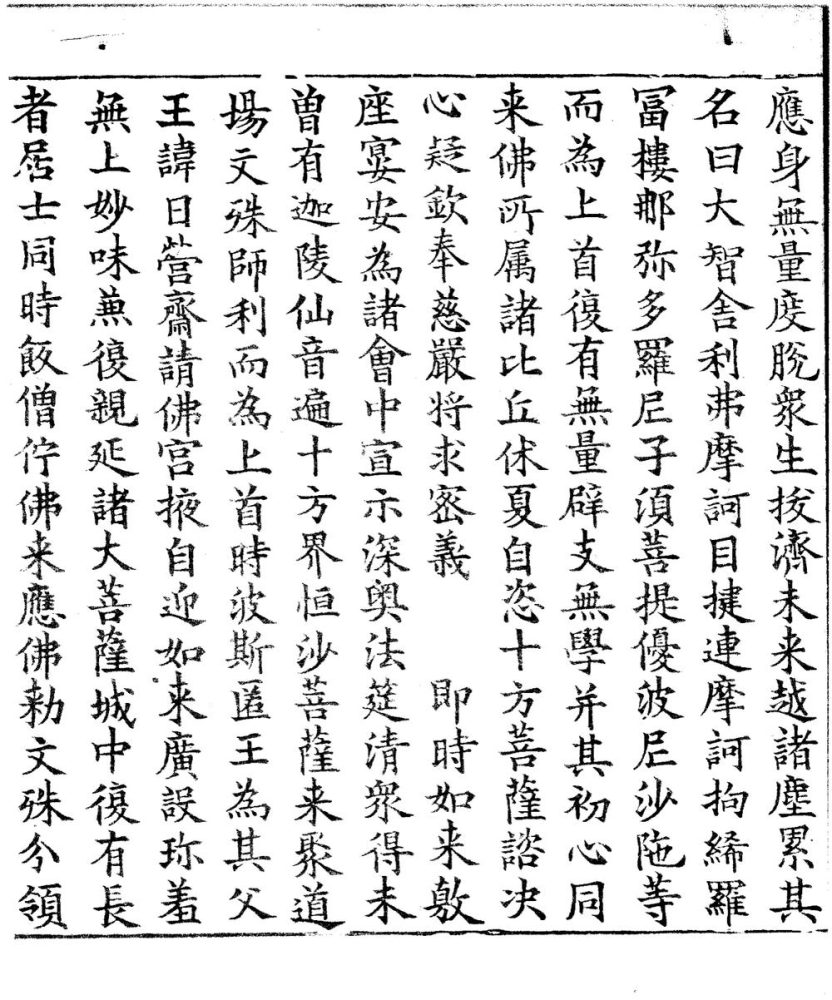 應身無量度脫衆生拔濟未来越諸塵累其
名曰大智舎利弗摩訶目揵連摩訶拘絺羅
冨樓那弥多羅尼子須菩提優波尼沙陁䓁
而為上首復有無量辟支無學并其初心同
来佛所属諸比丘休夏自恣十方菩薩諮决
心疑欽奉慈嚴将求宻義　　即時如来敷
座宴安為諸會中宣示深奥法筵清衆得未
曽有迦陵仙音遍十方界恒沙菩薩来聚道
場文殊師利而為上首時波斯匿王為其父
王諱日營齋請佛宫掖自迎如来廣設珎羞
無上妙味兼復親延諸大菩薩城中復有長
者居士同時飯僧佇佛来應佛勑文殊分領